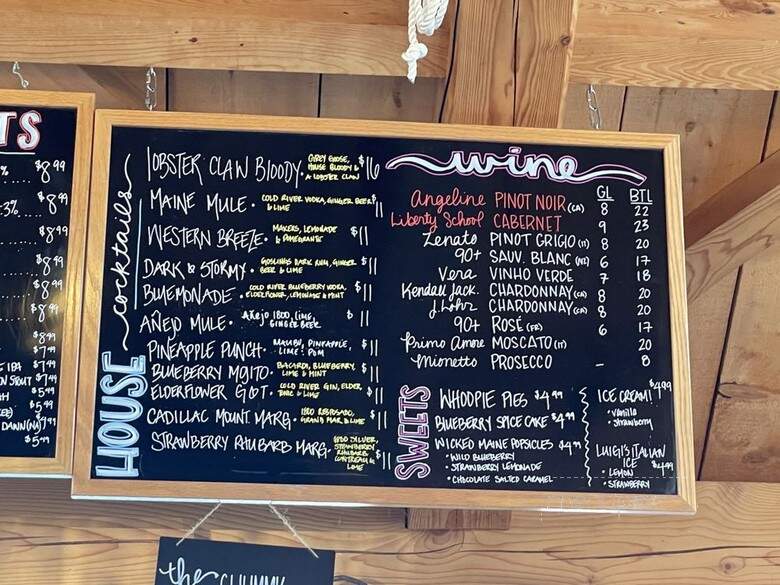 TS
% $8.99
.3% $8.99
$8.99
$8.99
$8.99
$8.99
$7.99
IPA $7.99
STOUT $7.99
$5.99
$5.99
DAWN $7.99
$5.99
HOUSE cocktails
LOBSTER CLAW BLOODY • GREY GOOSE, HOUSE BLOODY & A LOBSTER CLAW $16
MAINE MULE • COLD RIVER VODKA, GINGER BEER & LIME $11
WESTERN BREEZE • MAKERS, LEMONADE & POMEGRANATE $11
DARK & STORMY • GOSLINGS DARK RUM, GINGER BEER & LIME $11
BLUEMONADE • COLD RIVER BLUEBERRY VODKA, ELDERFLOWER, LEMONADE & MINT $11
AÑEJO MULE • AÑEJO 1800, LIME, GINGER BEER $11
PINEAPPLE PUNCH • MALIBU, PINEAPPLE, LIME & POM $11
BLUEBERRY MOJITO • BACARDI, BLUEBERRY, LIME & MINT $11
ELDERFLOWER G & T • COLD RIVER GIN, ELDER, TONIC & LIME $11
CADILLAC MOUNT. MARG • 1800 REPOSADO, GRAND MAR & LIME $11
STRAWBERRY RHUBARB MARG • 1800 SILVER, STRAWBERRY RHUBARB COINTREAU & LIME $11
wine
GL BTL
Angeline PINOT NOIR (CA) 8 22
Liberty School CABERNET 9 23
Zenato PINOT GRIGIO (IT) 8 20
90+ SAUV. BLANC (NZ) 6 17
Vera VINHO VERDE 7 18
Kendall Jack. CHARDONNAY (CA) 8 20
J. Lohr CHARDONNAY (CA) 8 20
90+ ROSÉ (FR) 6 17
Primo Amore MOSCATO (IT) 20
Mionetto PROSECCO – 8
SWEETS
WHOOPIE PIES $4.99
BLUEBERRY SPICE CAKE $4.99
WICKED MAINE POPSICLES $4.99
• WILD BLUEBERRY
• STRAWBERRY LEMONADE
• CHOCOLATE SALTED CARAMEL
ICE CREAM! $4.99
• Vanilla
• Strawberry
LUIGI'S ITALIAN ICE $4.99
• LEMON
• STRAWBERRY
the CHUMMY